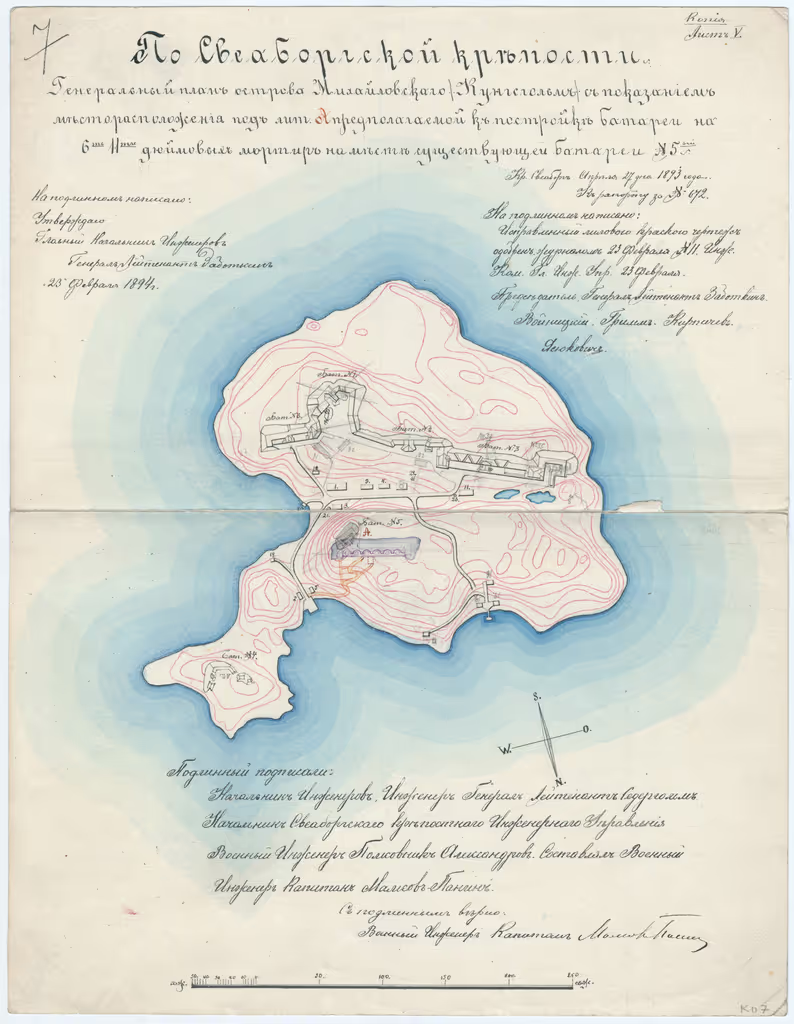 7
Копія
Листъ V.
По Свеаборгской крѣпости.
Генеральный планъ острова Михайловскаго /Кунгсгольмъ/ съ показаніемъ
мѣсторасположенія подъ лит. А предполагаемой къ постройкѣ батареи на
6ть 11ти дюймовыхъ мортиръ на мѣстѣ существующей батареи №5ый
Кр. Свеаборгъ Апрѣля 17 дня 1893 года.
Къ рапорту за № 672.
На подлинномъ написано:
Утверждаю
Главный Начальникъ Инженеровъ
Генералъ-Лейтенантъ Заботкинъ
23 Февраля 1894 г.
На подлинномъ написано:
Исправленный лиловаго краскою чертежъ
одобренъ журналомъ 23 Февраля №11. Инж.
Ком. Гл. Инж. Упр. 23 Февраля.
Предсѣдатель Генералъ-Лейтенантъ Заботкинъ.
Войницкій. Гриммъ. Кирпичевъ.
Бат. №1.
Бат. №2.
Бат. №3.
Бат. №5.
А.
Бат. №4.
S.
W. O.
N.
Подлинный подписали:
Начальникъ Инженеровъ, Инженеръ Генералъ Лейтенантъ Седергольмъ
Начальникъ Свеаборгскаго Крѣпостного Инженернаго Управленія
Военный Инженеръ Полковникъ Александровъ. Составлялъ Военный
Инженеръ Капитанъ Малковъ-Панинъ.
Съ подлиннымъ вѣрно:
Военный Инженеръ Капитанъ Малков-Панин
саж. 50 40 30 20 10 0 50. 100. 150 200. 250 саж.
К о 7